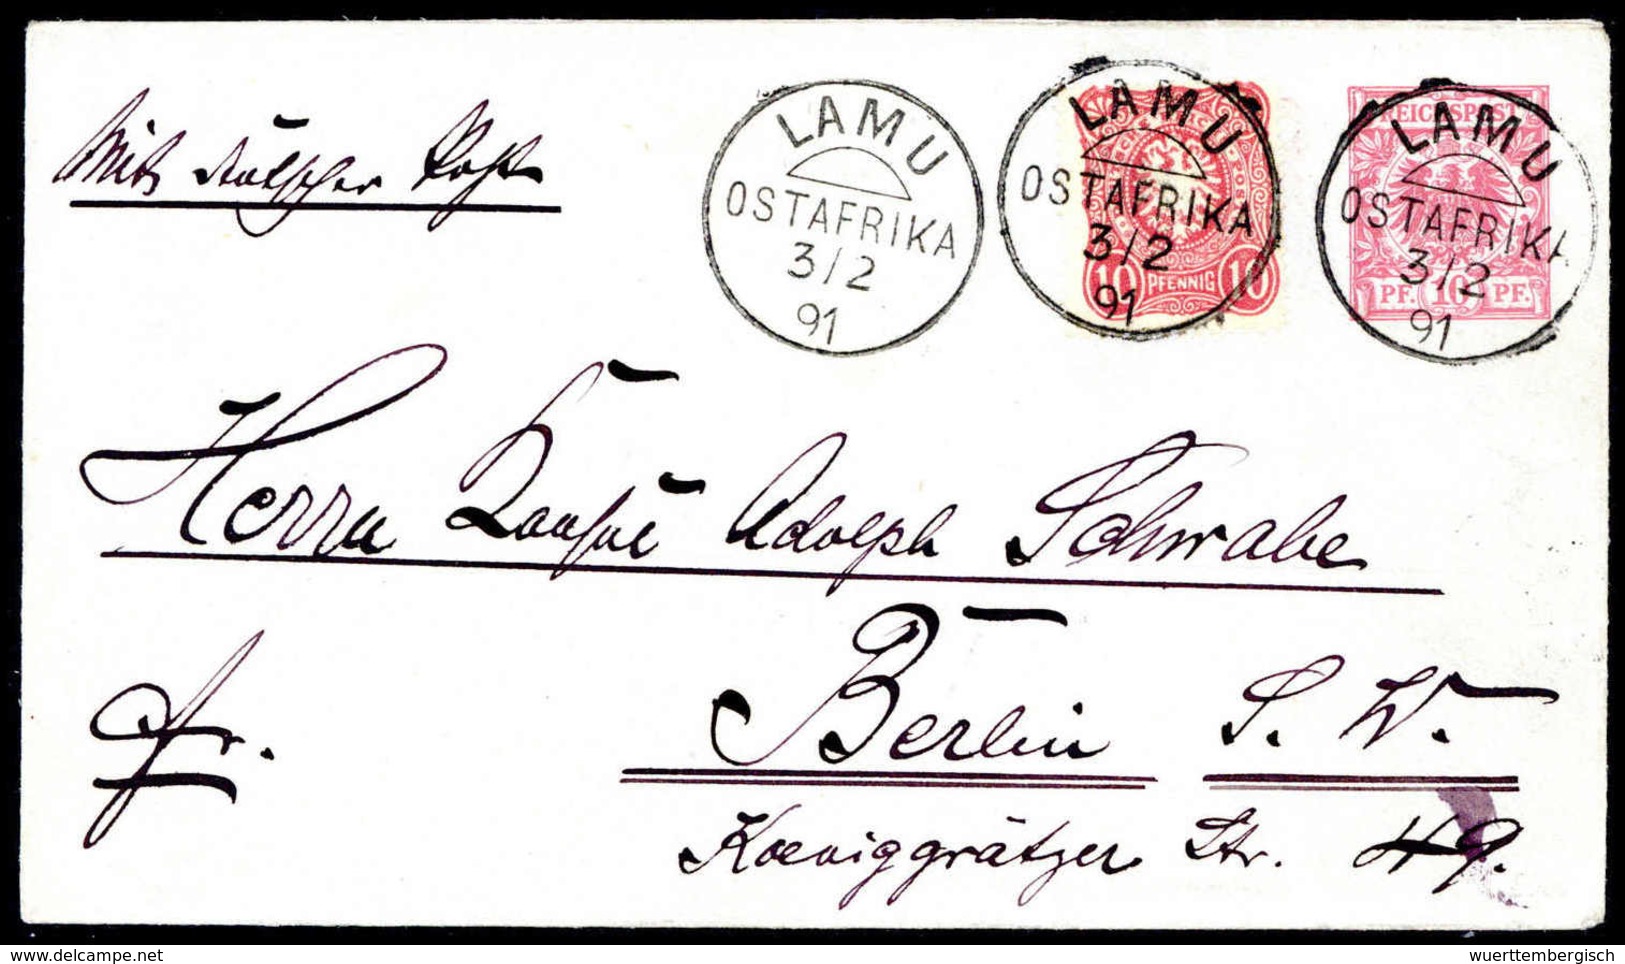 Mit deutscher Post
LAMU
OSTAFRIKA
3/2
91
LAMU
OSTAFRIKA
3/2
91
10 PFENNIG 10
REICHSPOST
LAMU
OSTAFRIKA
3/2
91
PF. 10 PF.
Herrn Adolph Schwabe
fr.
Berlin S. W.
Koeniggrätzer Str. 49.
www.delcampe.net
wuerttembergisch